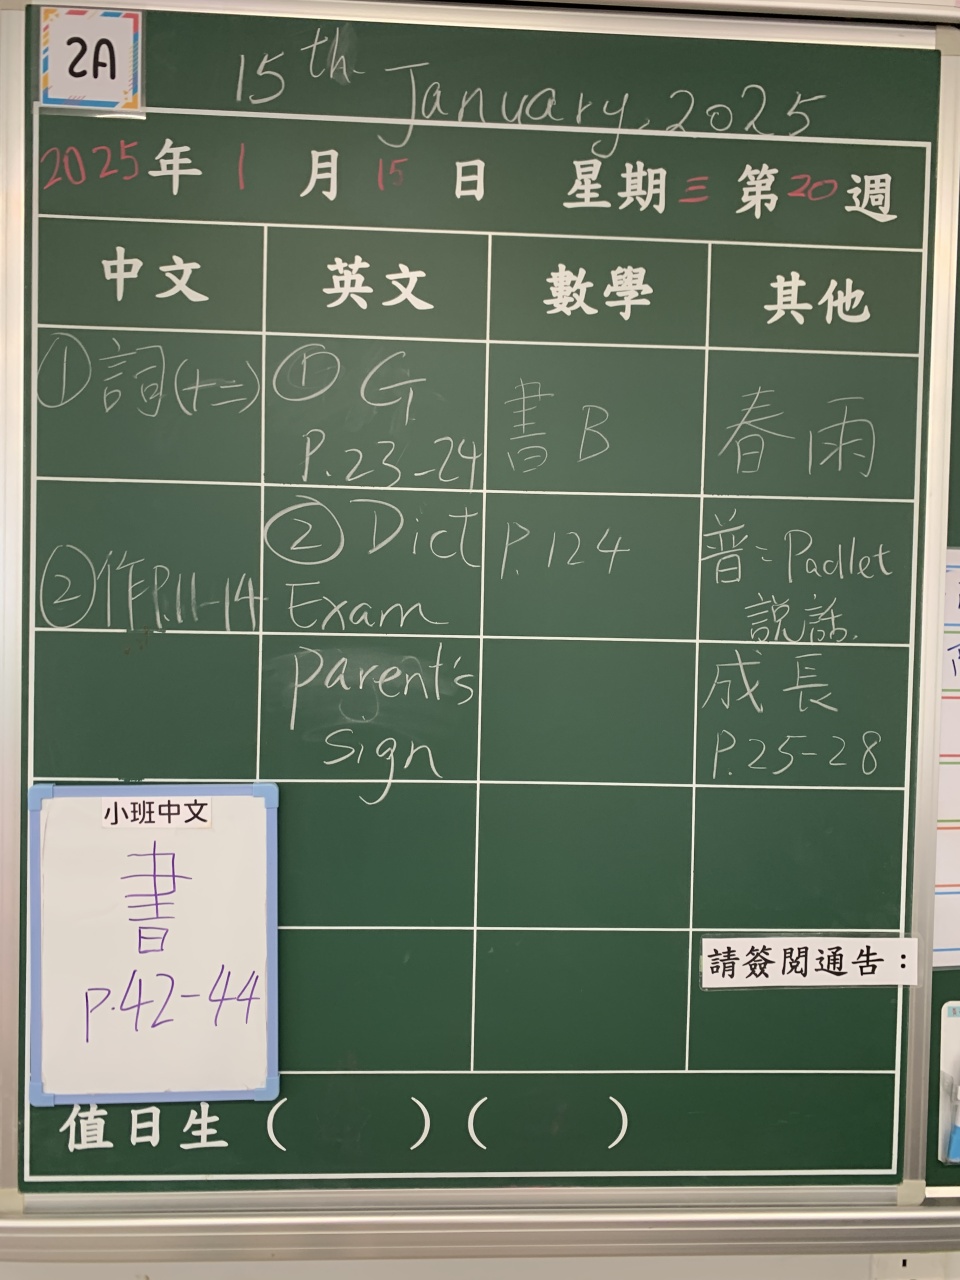 2A
15th January, 2025
2025年 1月 15日 星期三 第20週
中文 英文 數學 其他
①詞(十二)
②作P.11-14
① G
P.23-24
② Dict
Exam
parent's
sign
書B
P.124
春雨
普：Padlet
說話
成長
P.25-28
小班中文
書
P.42-44
請簽閱通告：
值日生（ ）（ ）